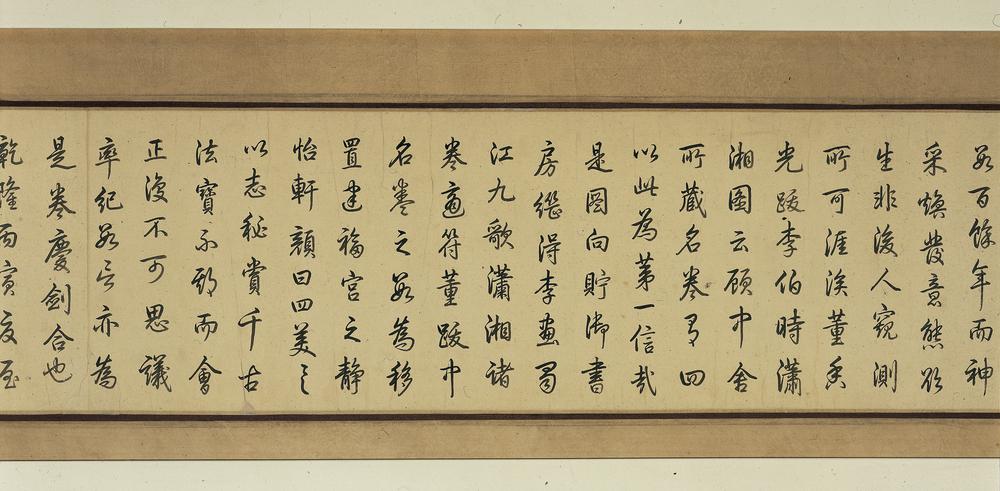 數百餘年而神
采煥發意態欲
生非後人窺測
所可涯涘董香
光跋李伯時瀟
湘圖云顧中舍
所藏名卷有四
以此為第一信哉
是圖向貯御書
房繼得李畫蜀
江九歌瀟湘諸
卷適符董跋中
名卷之數為移
置建福宮之靜
怡軒顏曰四美具
以志秘賞千古
法寶不期而會
正復不可思議
率紀數言亦為
是卷慶劍合也
乾隆丙寅夏至